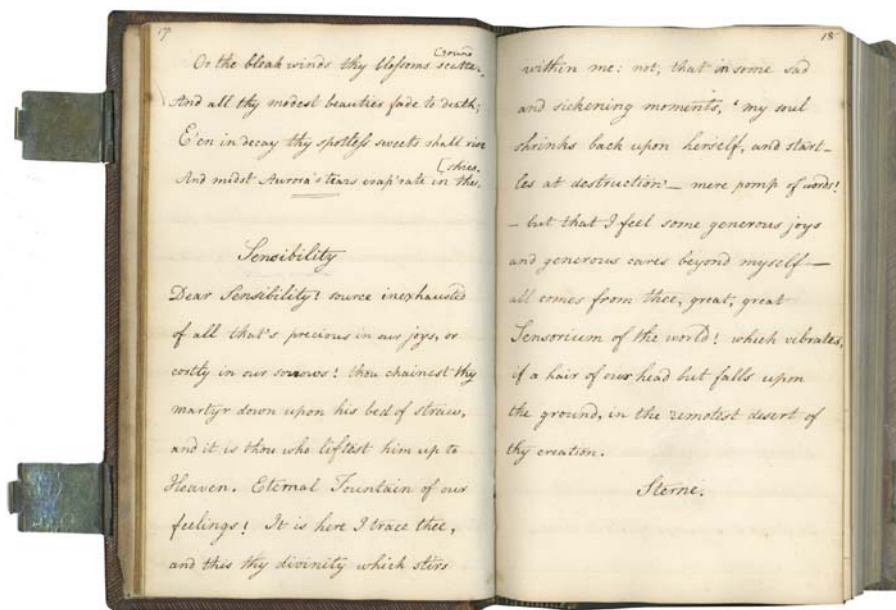 17
Or the bleak winds thy blossoms scatter
[round
And all thy modest beauties fade to death;
E'en in decay thy spotless sweets shall rise
[skies.
And midst Aurora's tears evap'rate in the
Sensibility
Dear Sensibility! source inexhausted
of all that's precious in our joys, or
costly in our sorrows! thou chainest thy
martyr down upon his bed of straw,
and it is thou who liftest him up to
Heaven. Eternal Fountain of our
feelings! It is here I trace thee,
and this thy divinity which stirs
18
within me: not, that in some sad
and sickening moments, 'my soul
shrinks back upon herself, and start-
les at destruction' — mere pomp of words!
– but that I feel some generous joys
and generous cares beyond myself —
all comes from thee, great, great
Sensorium of the world! which vibrates,
if a hair of our head but falls upon
the ground, in the remotest desert of
thy creation.
Sterne.